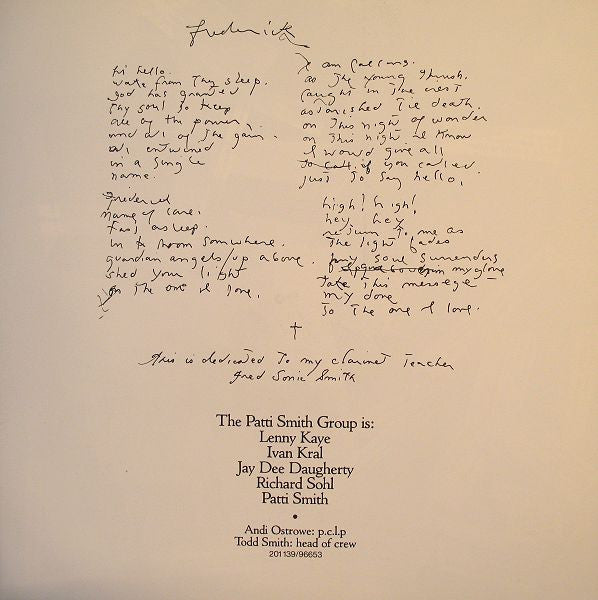 Frederick
hi hello.
wake from thy sleep.
god has granted
thy soul to keep
all of the power
and all of the gain.
all entwined
in a single
name.
Frederick
name of love.
fast asleep.
in a room somewhere.
guardian angels/up above.
shed your light
on the one I love.
I am calling.
as the young thrush.
caught in the nest
astonished til death.
on this night of wonder
on this night I know
I would give all
to call. if you called
just to say hello.
high! high!
hey hey
return to me as
the light fades
my soul surrenders
my glove
take this message
my dove
to the one I love.
†
this is dedicated to my clarinet teacher
Fred Sonic Smith
The Patti Smith Group is:
Lenny Kaye
Ivan Kral
Jay Dee Daugherty
Richard Sohl
Patti Smith
•
Andi Ostrowe: p.c.l.p
Todd Smith: head of crew
201 139/96653